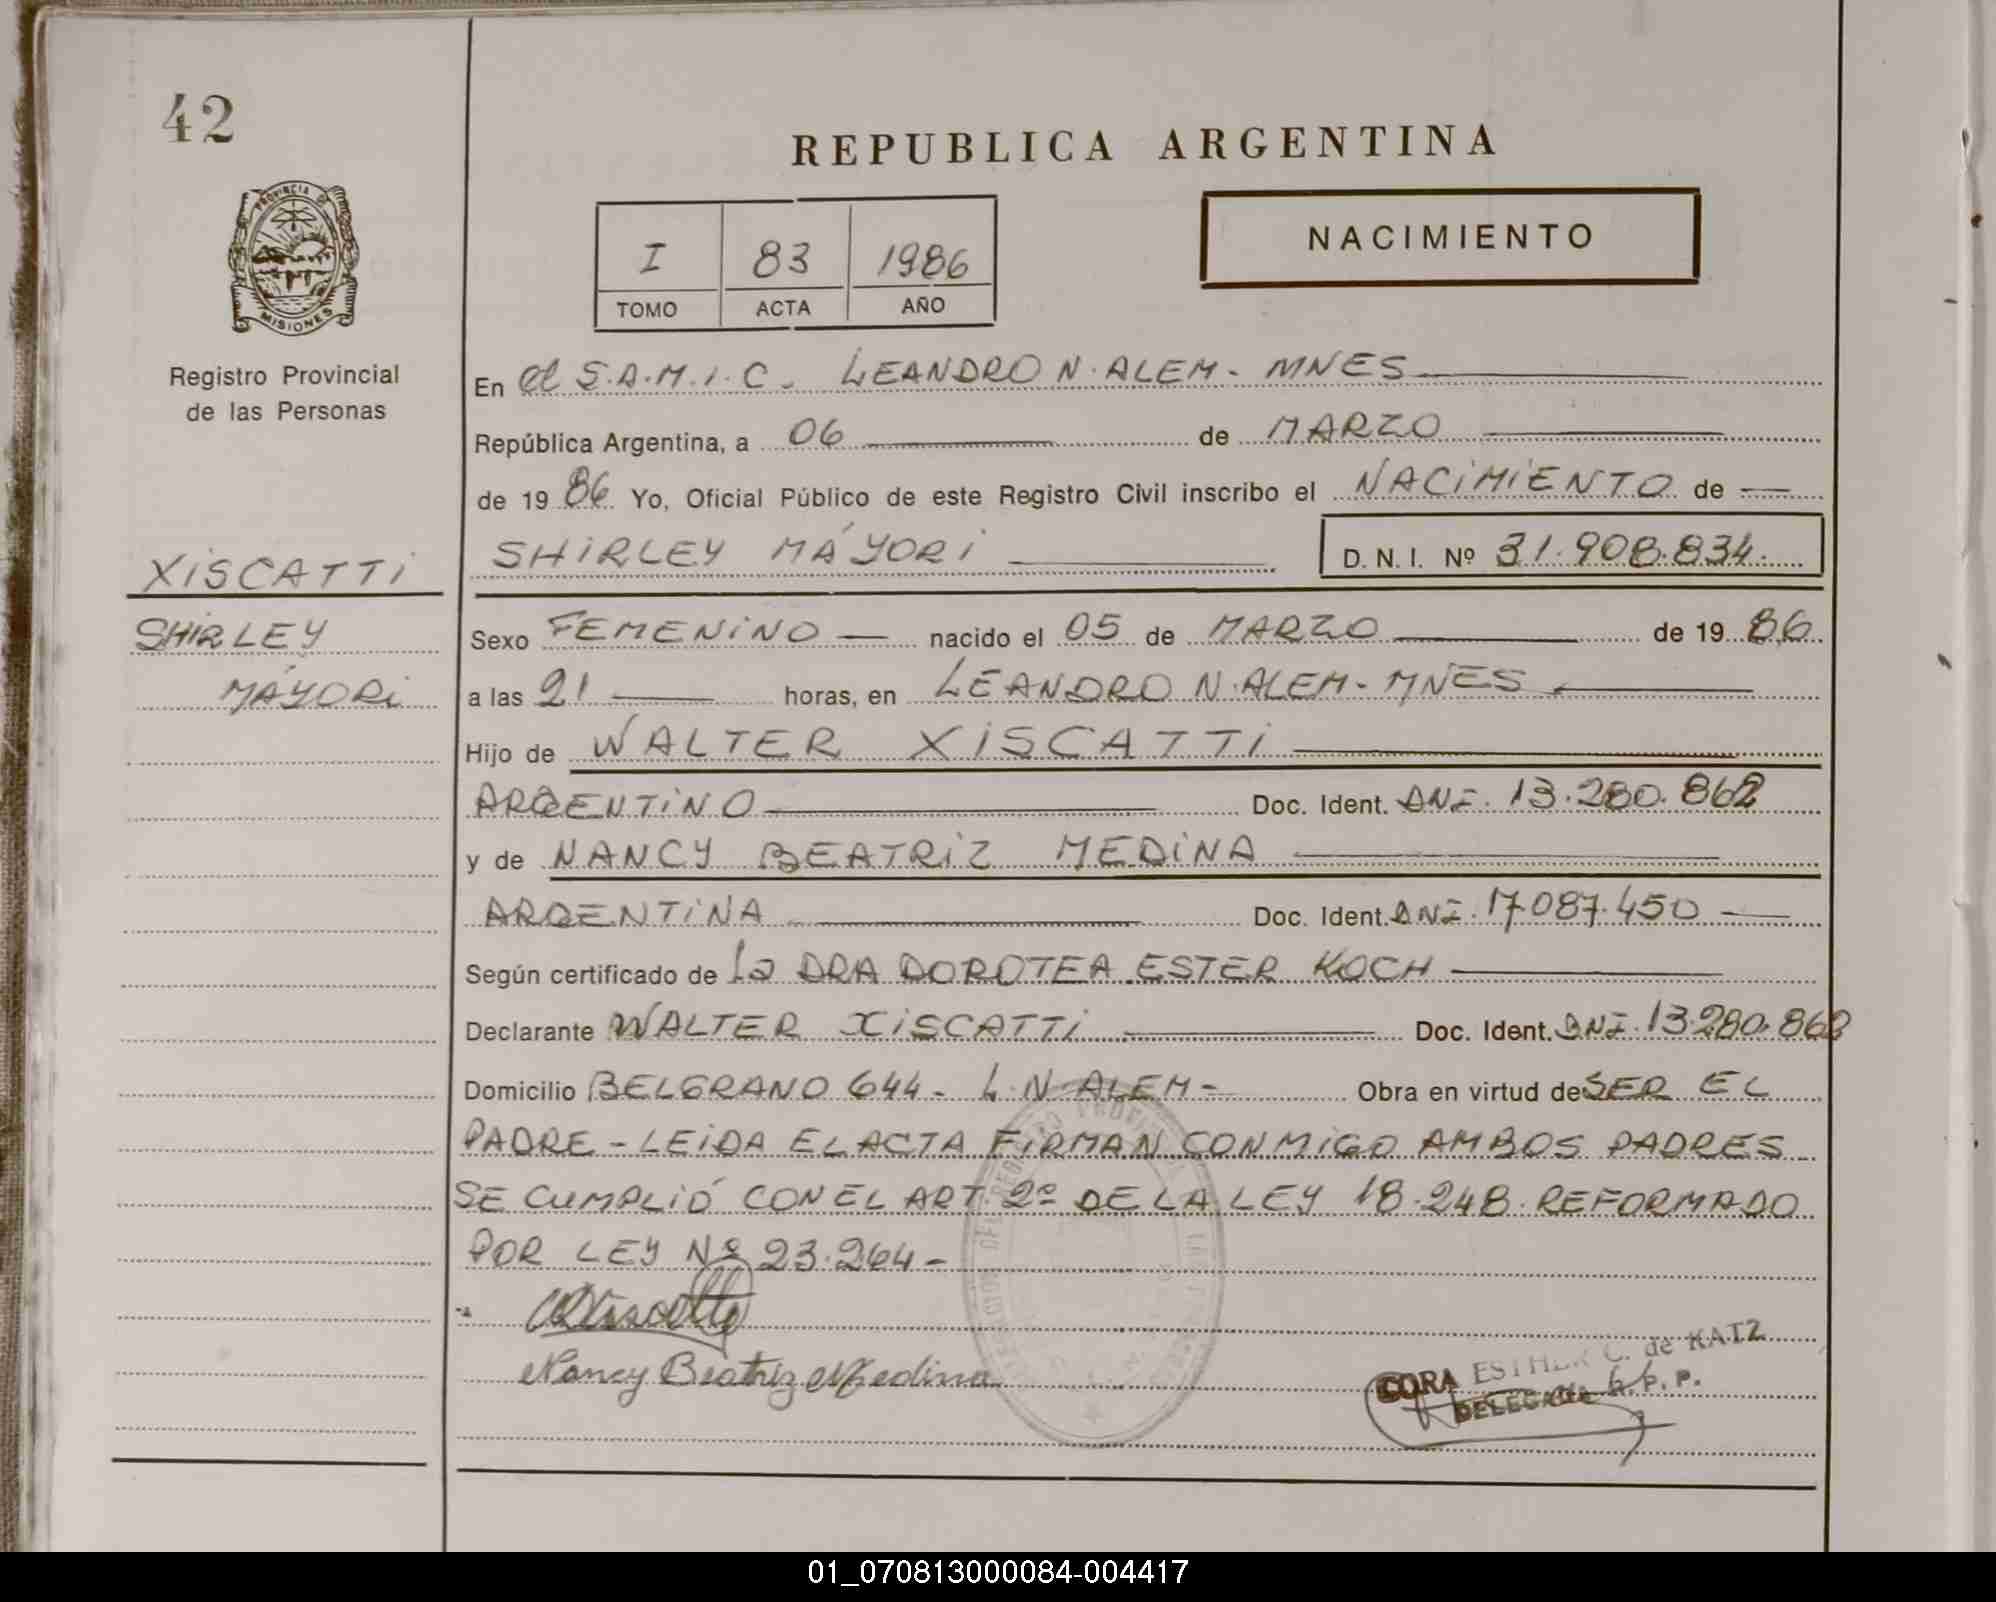 42
REPUBLICA ARGENTINA
PROVINCIA DE
MISIONES
Registro Provincial
de las Personas
I 83 1986
TOMO ACTA AÑO
NACIMIENTO
En el S.A.M.I.C. LEANDRO N. ALEM - MNES
República Argentina, a 06 de MARZO
de 19 86 Yo, Oficial Público de este Registro Civil inscribo el NACIMIENTO de
SHIRLEY MÁYORI D. N. I. Nº 31.908.834
XISCATTI
SHIRLEY
MÁYORI
Sexo FEMENINO nacido el 05 de MARZO de 19 86
a las 21 horas, en LEANDRO N. ALEM - MNES
Hijo de WALTER XISCATTI
ARGENTINO Doc. Ident. DNI. 13.280.862
y de NANCY BEATRIZ MEDINA
ARGENTINA Doc. Ident. DNI. 17.087.450
Según certificado de La DRA DOROTEA ESTER KOCH
Declarante WALTER XISCATTI Doc. Ident. DNI. 13.280.862
Domicilio BELGRANO 644 - L.N. ALEM - Obra en virtud de SER EL
PADRE - LEIDA EL ACTA FIRMAN CONMIGO AMBOS PADRES
SE CUMPLIÓ CON EL ART 2º DE LA LEY 18.248 REFORMADO
POR LEY Nº 23.264 -
Nancy Beatriz Medina
CORA ESTHER C. de KATZ
DELEGADA R.P.P.
01_070813000084-004417